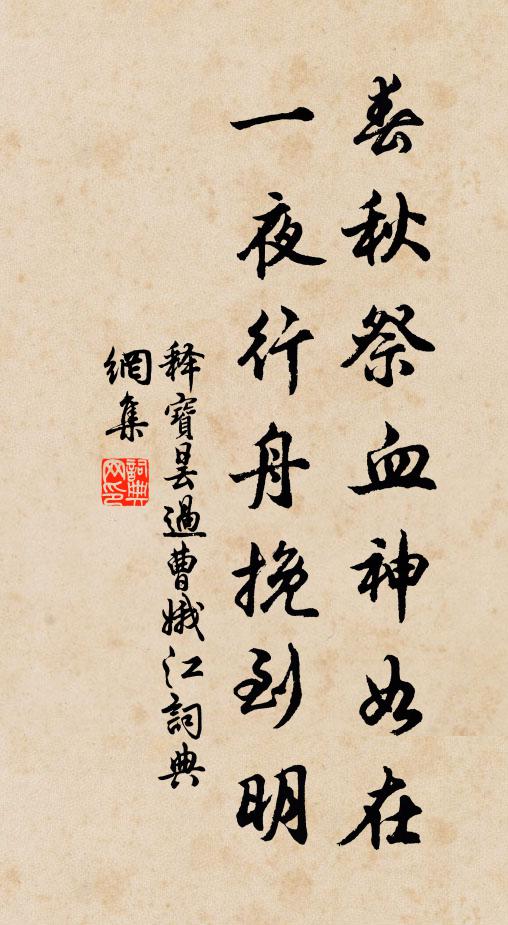 春秋祭血神如在
一夜行舟挽到明
释寶昙過曹娥江詞典
網集
詞典網印